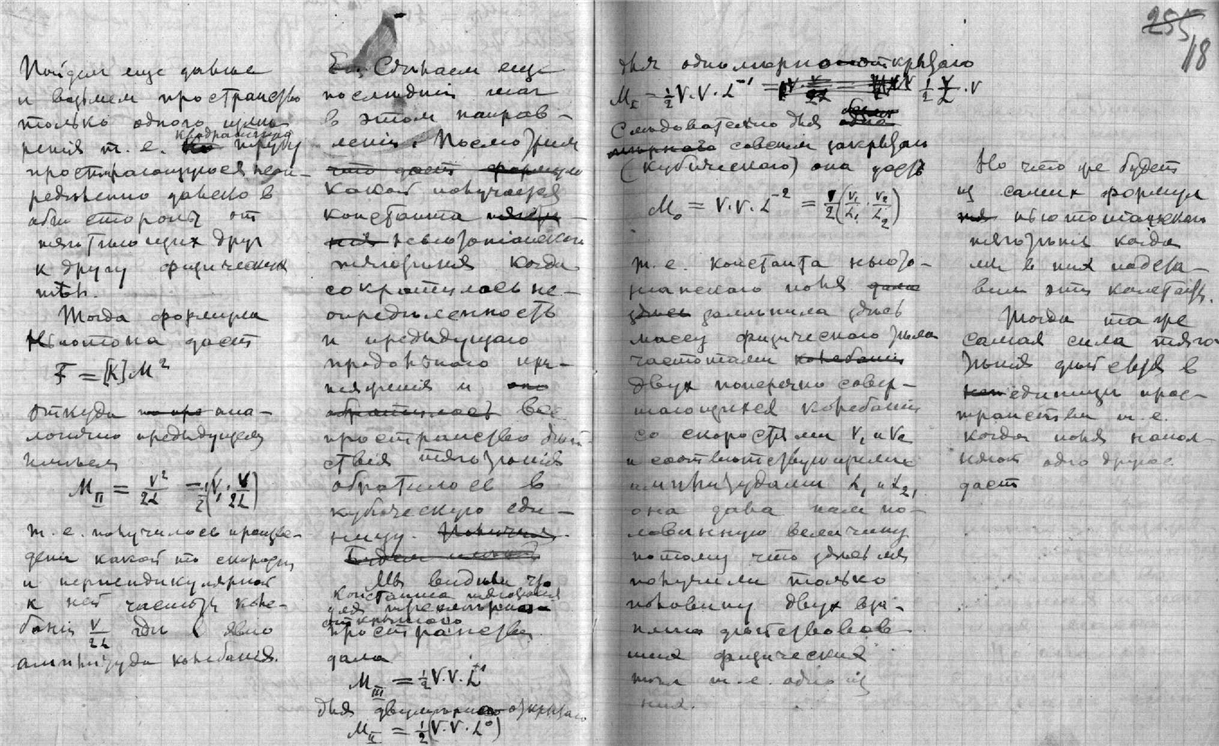 255
18
Пойдем еще дальше
и возьмем пространство
только одного изме-
рения т. е. квадратную трубу
простирающуюся неоп-
ределенно далеко в
обе стороны от
тяготеющих друг
к другу физических
тѣл.
Тогда формула
Ньютона даст
F = [K] M²
откуда ана-
логично предыдущему
имеем
M_II = V²/2L = ½(V, V/2L)
т. е. получилось произве-
дение какой то скорости
и перпендикулярной
к ней частоты коле-
баний V/2L где L явно
амплитуда колебания.
Сделаем еще
последний шаг
в этом направ-
лении. Посмотрим
какой получается
константа
ньютонианского
тяготения когда
сократилось не-
определенность
и предыдущего
предельного
и
все
пространство дей-
ствия тяготения
обратилось в
кубическую еди-
ницу.
Мы видим что
константа тяготения
для трехмерного
открытого
пространства
дала
M_III = ½ V. V. L⁺¹
для двумерного открытого
M_II = ½ (V. V. L⁰)
для одномерно открытого
M_I = ½ V. V. L⁻¹ = ½ V/L · V
Следовательно для
совсем закрытого
(кубического) она даст
M_0 = V. V. L⁻² = ½ (V₁/L₁, V₂/L₂)
т. е. константа ньюто-
нианского поля
заменила здесь
массу физического тела
частотами
двух поперечно совер-
шающихся колебаний
со скоростями V₁ и V₂
и соответствующими
амплитудами L₁ и L₂,
она дала нам по-
ловинную величину
потому что здесь мы
получили только
половину двух вза-
имно действовав-
ших физических
тел т. е. одно из
них.
Но что же будет
из самих формул
ньютонианского
тяготения когда
мы в них подста-
вим эти константы.
Тогда та же
самая сила тяго-
тения действуя в
единице прос-
транства т. е.
когда поля напол-
няют одно другое
даст